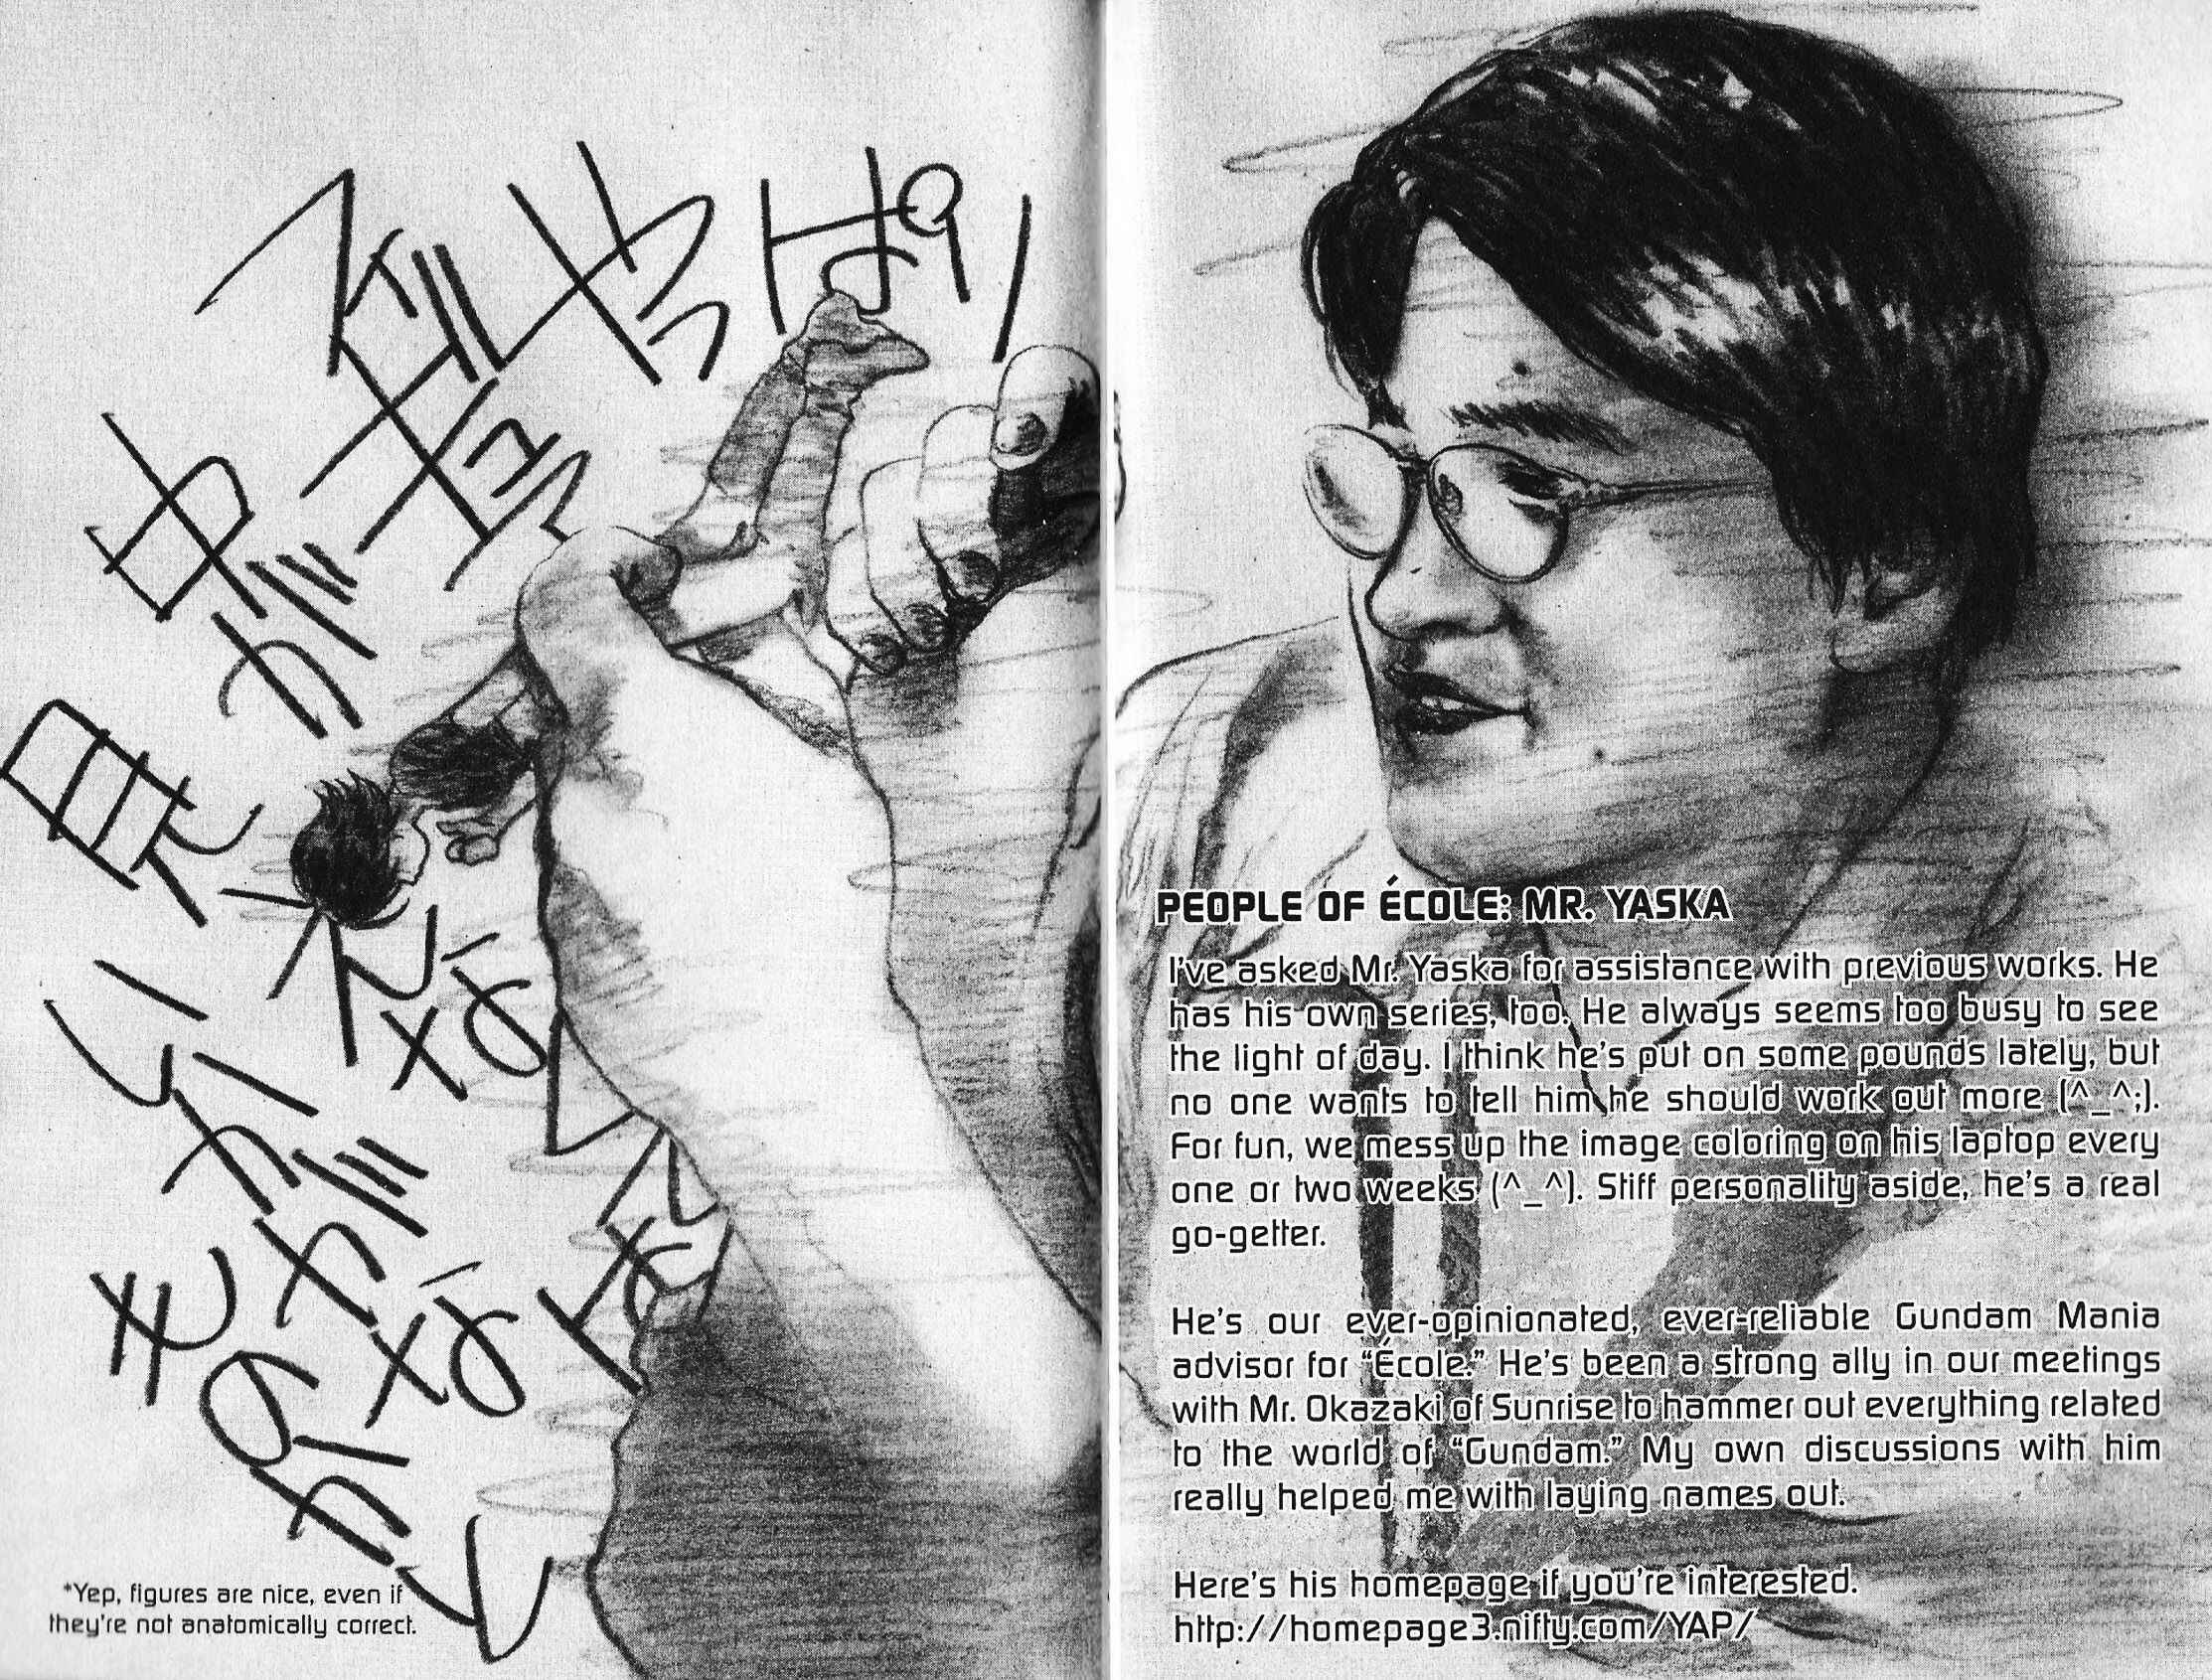 やっぱり
中が
見えない
いかがな
ものかと
*Yep, figures are nice, even if
they're not anatomically correct.
PEOPLE OF ÉCOLE: MR. YASKA
I've asked Mr. Yaska for assistance with previous works. He
has his own series, too. He always seems too busy to see
the light of day. I think he's put on some pounds lately, but
no one wants to tell him he should work out more (^_^;).
For fun, we mess up the image coloring on his laptop every
one or two weeks (^_^). Stiff personality aside, he's a real
go-getter.
He's our ever-opinionated, ever-reliable Gundam Mania
advisor for “École.” He's been a strong ally in our meetings
with Mr. Okazaki of Sunrise to hammer out everything related
to the world of “Gundam.” My own discussions with him
really helped me with laying names out.
Here's his homepage if you're interested.
http://homepage3.nifty.com/YAP/